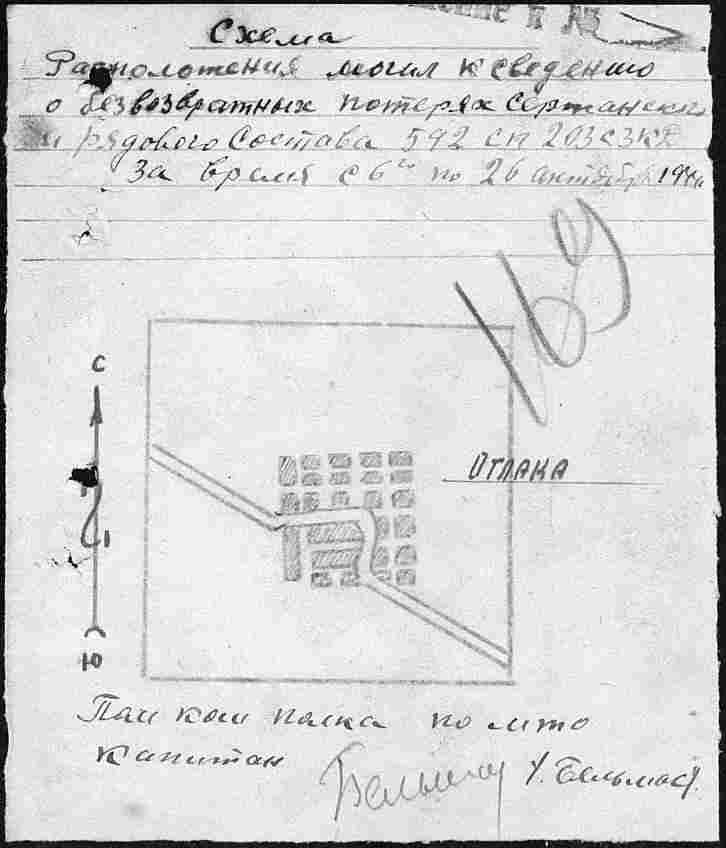 Схема
Расположения могил к сведению
о безвозвратных потерях сержанск
и рядового состава 592 сп 203 сзкд
За время с 6го по 26 октября 194
169
С
Отлака
Ю
Пом ком полка по мто
капитан
Бельмас